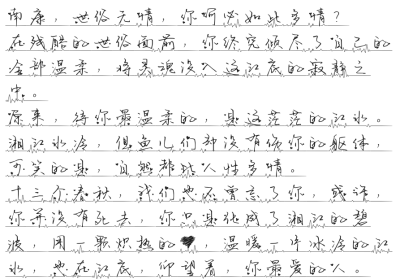 南康，世俗无情，你何必如此多情？
在残酷的世俗面前，你终究倾尽了自己的
全部温柔，将灵魂没入这江底的寂静之
中。
原来，待你最温柔的，是这茫茫的江水。
湘江水冷，但鱼儿们却没有伤你的躯体，
可笑的是，自然都比人性多情。
十三个春秋，我们也不曾忘了你，或许，
你并没有死去，你只是化成了湘江的碧
波，用一颗炽热的，温暖一片冰冷的江
水，也在江底，仰望着，你最爱的人。